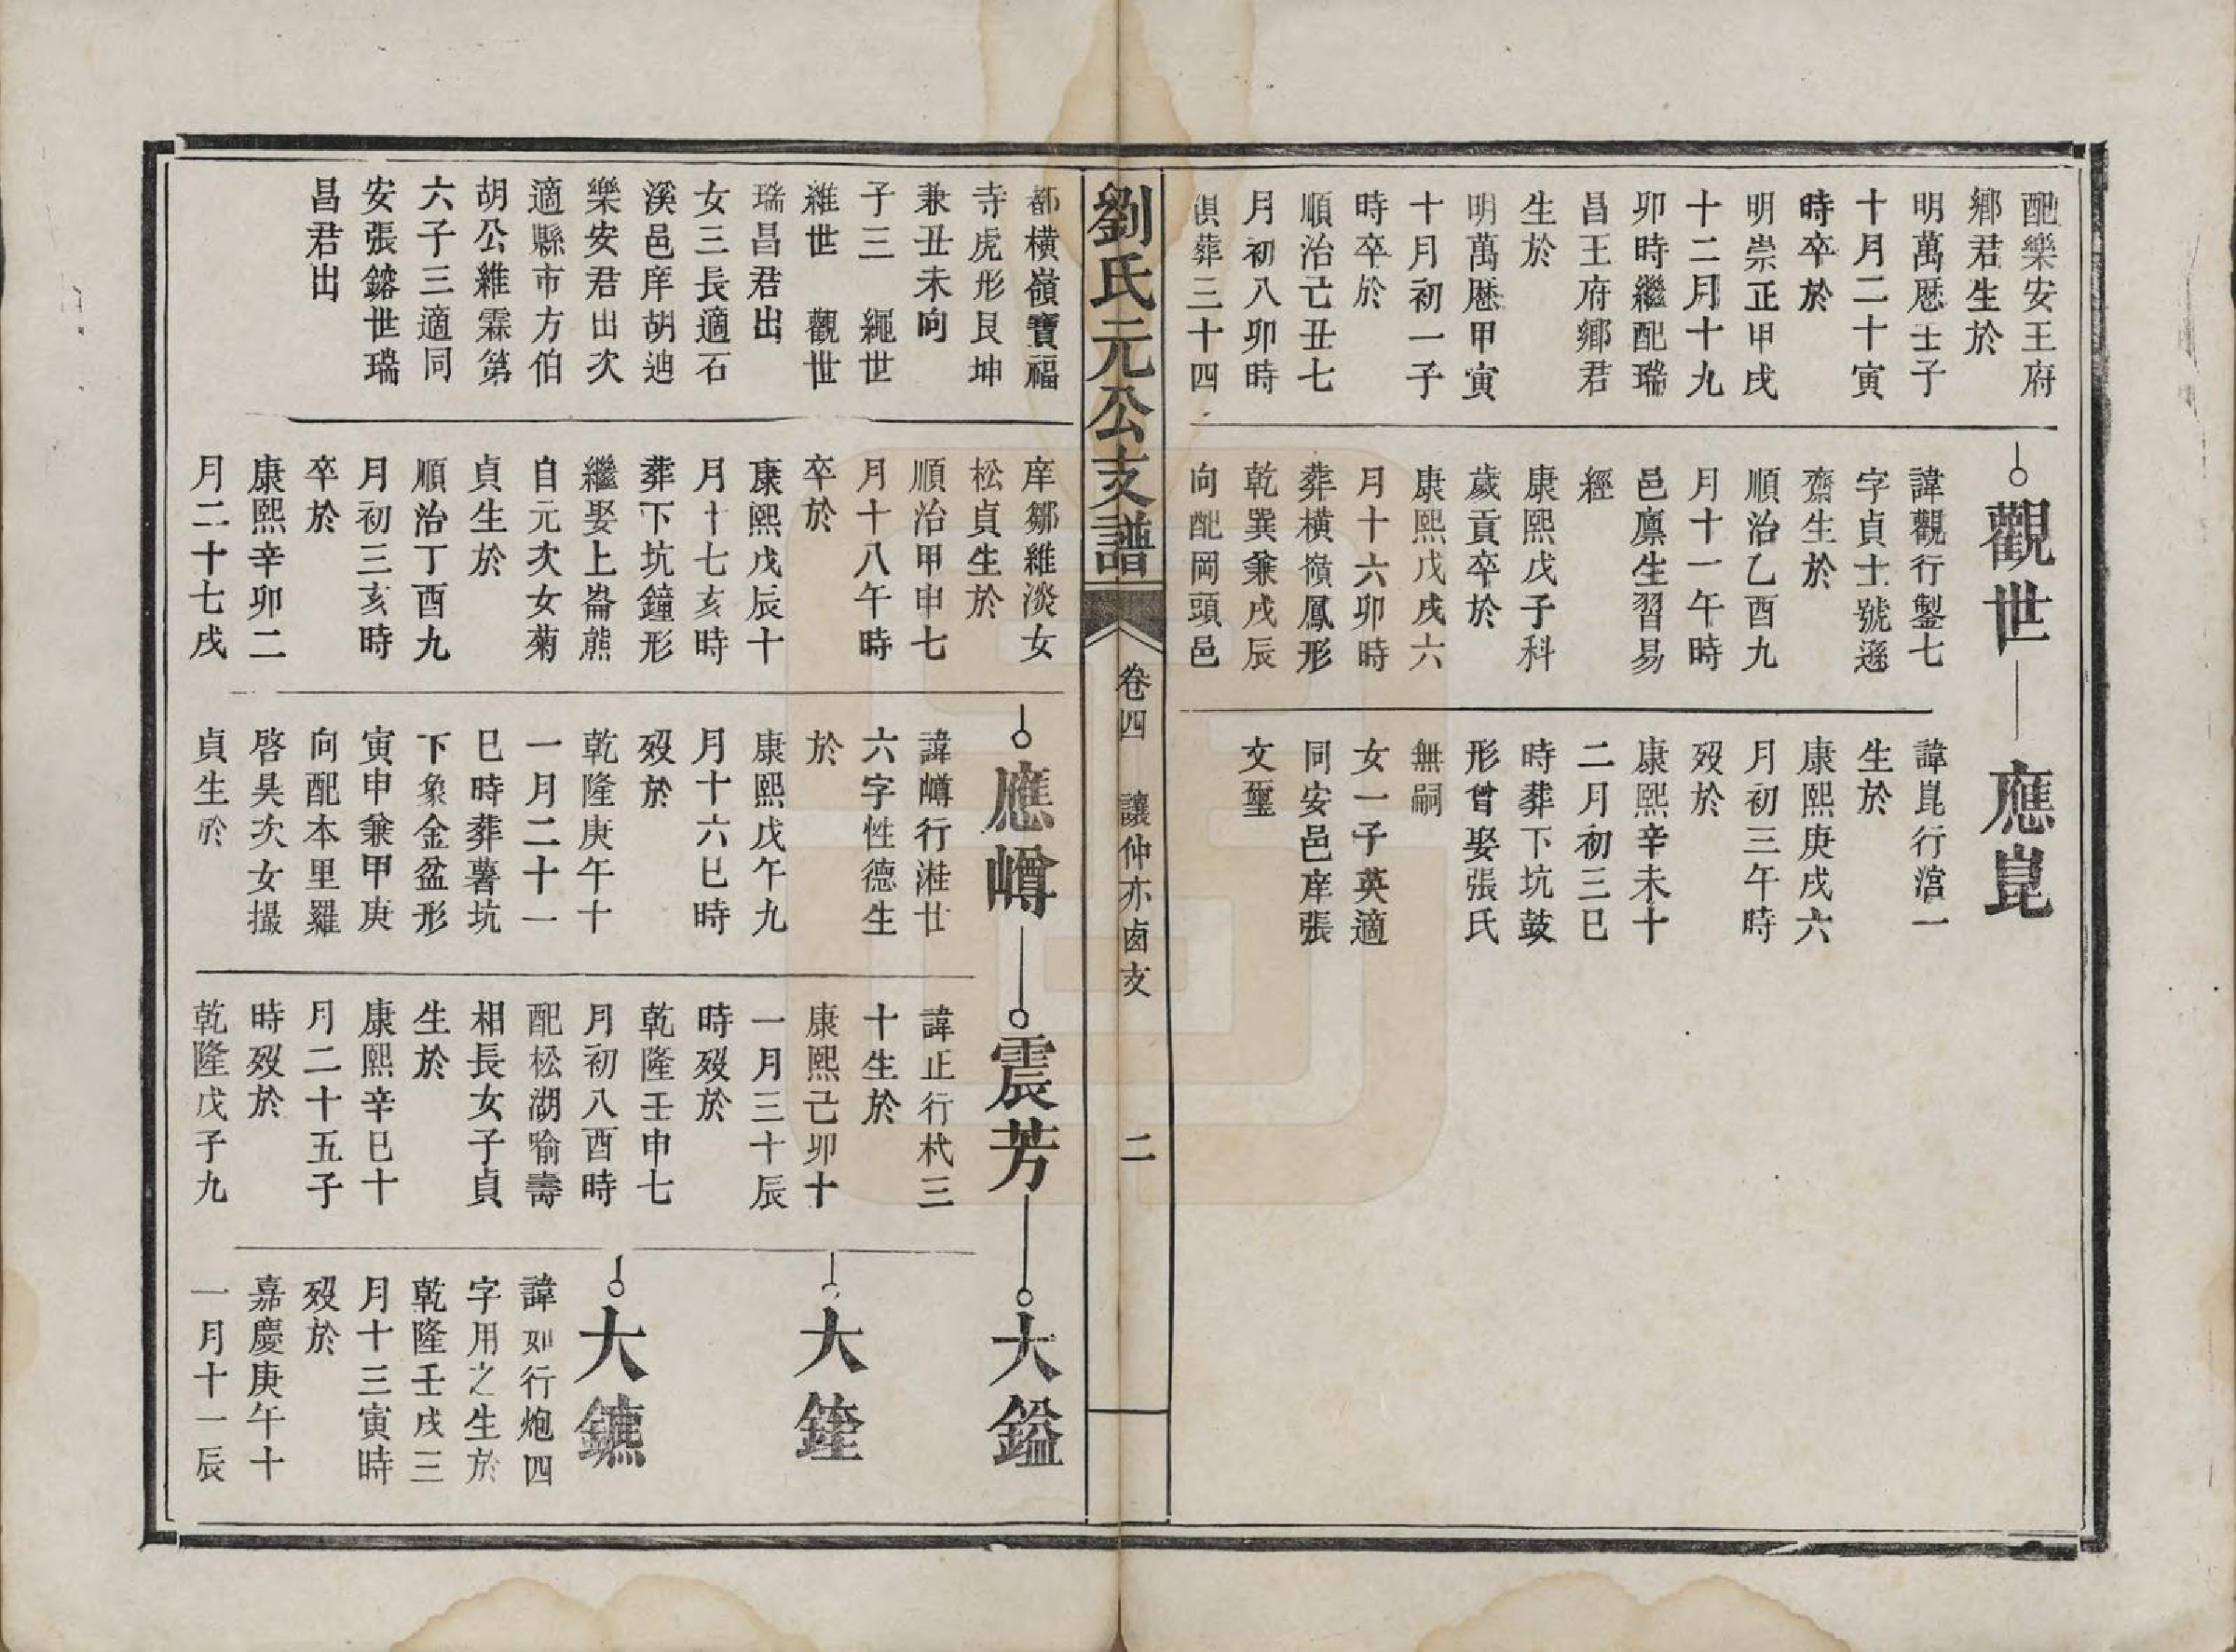 配樂安王府
鄉君生於
明萬厯壬子
十月二十寅
時卒於
明崇正甲戌
十二月十九
卯時繼配瑞
昌王府鄉君
生於
明萬厯甲寅
十月初一子
時卒於
順治己丑七
月初八卯時
俱葬三十四
觀世
諱觀行製七
字貞士號遜
齋生於
順治乙酉九
月十一午時
邑廪生習易
經
康熙戊子科
歲貢卒於
康熙戊戌六
月十六卯時
葬橫嶺鳳形
乾巽兼戌辰
向配岡頭邑
應崑
諱崑行涫一
生於
康熙庚戌六
月初三午時
歿於
康熙辛未十
二月初三巳
時葬下坑鼓
形曾娶張氏
無嗣
女一子英適
同安邑庠張
文璽
劉氏元公支譜
卷四
讓仲亦鹵支
二
都橫嶺寶福
寺虎形艮坤
兼丑未向
子三 繩世
維世 觀世
瑞昌君出
女三長適石
溪邑庠胡迪
樂安君出次
適縣市方伯
胡公維霖第
六子三適同
安張鎔世瑞
昌君出
庠鄒維淡女
松貞生於
順治甲申七
月十八午時
卒於
康熙戊辰十
月十七亥時
葬下坑鐘形
繼娶上崙熊
自元次女菊
貞生於
順治丁酉九
月初三亥時
卒於
康熙辛卯二
月二十七戌
應嶟
諱嶟行溎廿
六字性德生
於
康熙戊午九
月十六巳時
歿於
乾隆庚午十
一月二十一
巳時葬薯坑
下象金盆形
寅申兼甲庚
向配本里羅
啓昊次女撮
貞生於
震芳
諱正行杙三
十生於
康熙己卯十
一月三十辰
時歿於
乾隆壬申七
月初八酉時
配松湖喻壽
相長女子貞
生於
康熙辛巳十
月二十五子
時歿於
乾隆戊子九
大鎰
大鍷
大鑣
諱如行炮四
字用之生於
乾隆壬戌三
月十三寅時
歿於
嘉慶庚午十
一月十一辰